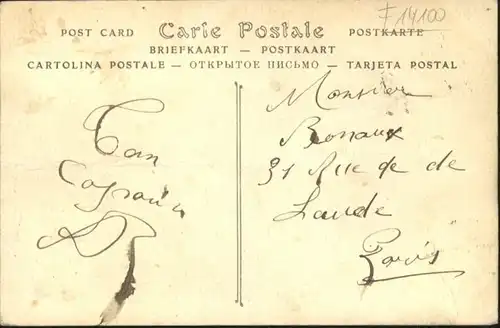 F 14100
POST CARD Carte Postale POSTKARTE
BRIEFKAART — POSTKAART
CARTOLINA POSTALE — ОТКРЫТОЕ ПИСЬМО — TARJETA POSTAL
Ton
Monsieur
31 Rue de
Paris